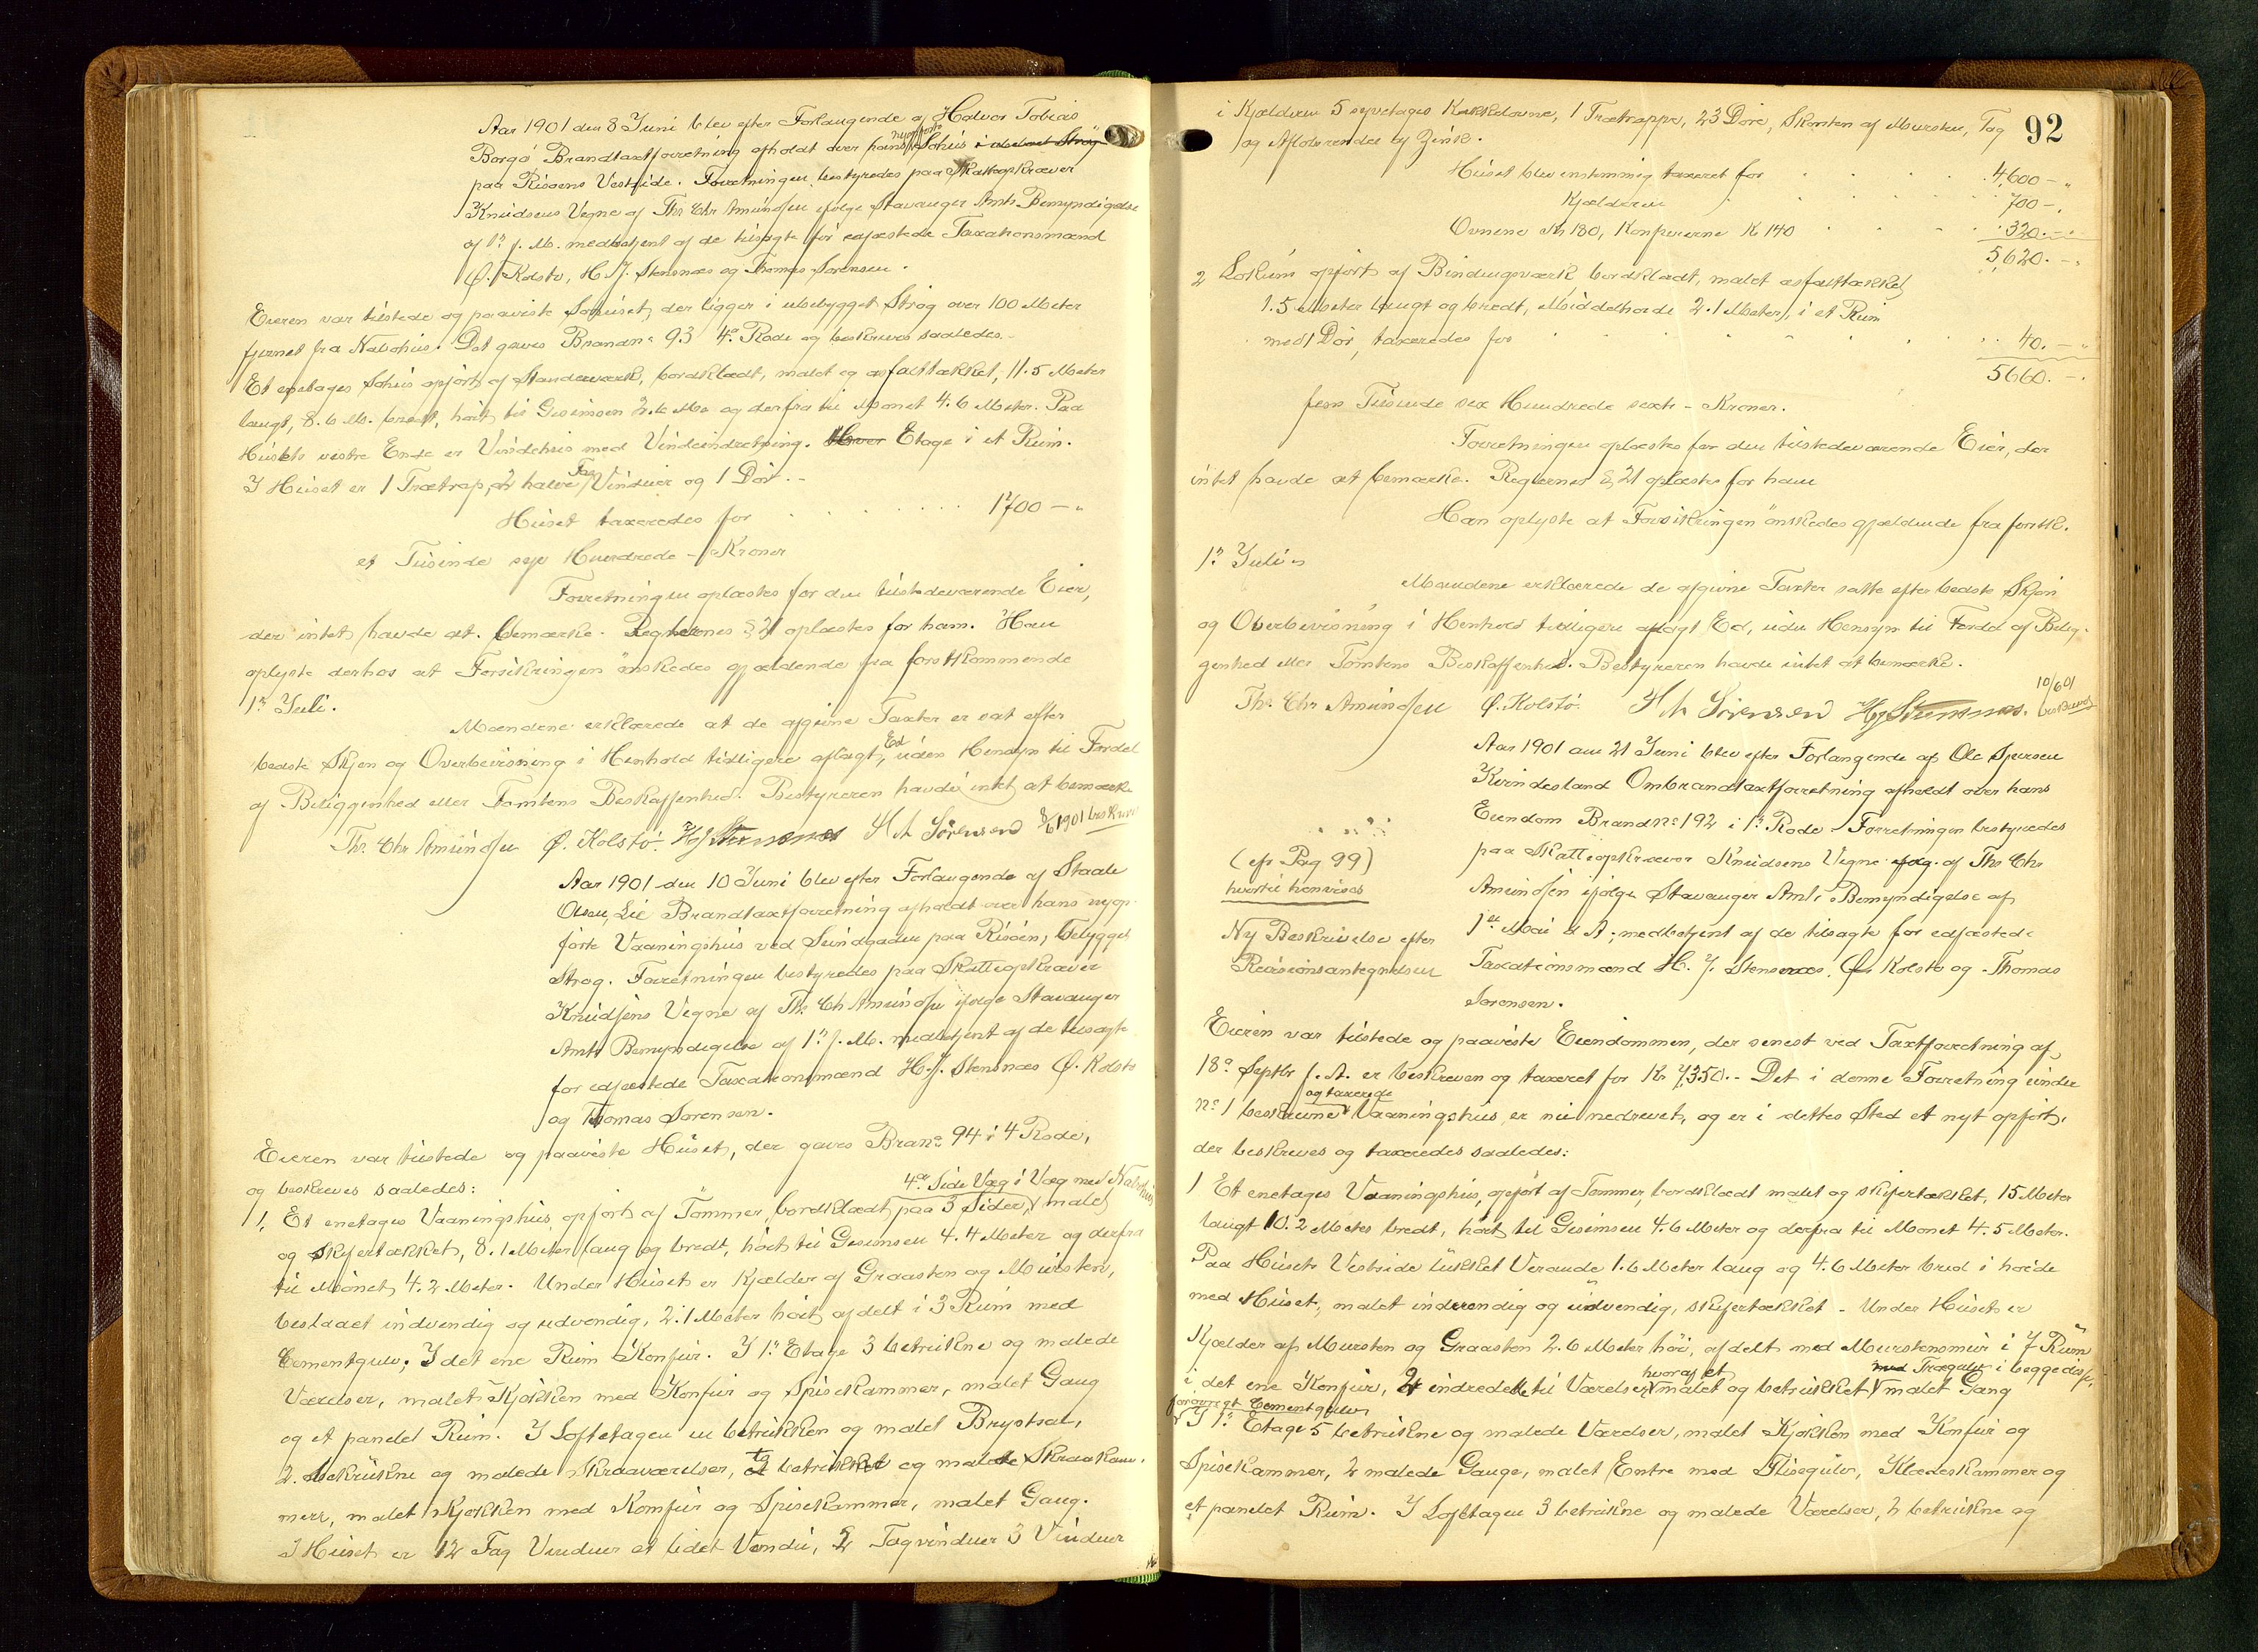 Aar 1901 den 8 Juni blev efter Forlangende af Halvor Tobias
Borgø Brandtaxtforretning afholdt over hans nyopførte Søhus i ubebygget Strøg
paa Risøens Vestside. Forretningen bestyredes paa Skatteopkræver
Knudsens Vegne af Ths Chr Amundsen ifølge Stavanger Amts Bemyndigelse
af 1ste f. M. medbetjent af de tilsagte før edfæstede Taxationsmænd
Ø. Kolstø, H. J. Stensnæs og Thomas Sørensen.
Eieren var tilstede og paaviste Søhuset, der ligger i ubebygget Strøg over 100 Meter
fjernet fra Nabohus. Det gaves Brandno 93 4de Rode og beskreves saaledes.
Et enetages Søhus opført af Standerværk, bordklædt, malet og asfalttækket, 11.5 Meter
langt, 8.6 M. bredt, høit til Gesimsen 2.6 M. og derfra til Mønet 4.6 Meter. Paa
Husets vestre Ende er Vindehus med Vindeindretning. Hver Etage i et Rum.
I Huset er 1 Trætrap, 2 halve Fag Vinduer og 1 Dør.
Huset taxeredes for . . . . . . . . 1700 - "
et Tusinde syv Hundrede - Kroner
Forretningen oplæstes for den tilstedeværende Eier,
der intet havde at bemærke. Reglernes § 21 oplæstes for ham. Han
oplyste derhos at Forsikringen ønskedes gjældende fra førstkommende
1ste Juli.
Mændene erklærede at de afgivne Taxter er sat efter
bedste Skjøn og Overbevisning i Henhold tidligere aflagt Ed, uden Hensyn til Fordel
af Beliggenhed eller Tomtens Beskaffenhed. Bestyreren havde intet at bemærke
Ths. Chr Amundsen Ø. Kolstø. H J Stensnæs H A Sörensen 8/6 1901 beskrevet
Aar 1901 den 10 Juni blev efter Forlangende af Staale
Olsen Lie Brandtaxtforretning afholdt over hans nyop-
førte Vaaningshus ved Sundgaden paa Risøen, bebygget
Strøg. Forretningen bestyredes paa Skatteopkræver
Knudsens Vegne af Ths Ch Amundsen ifølge Stavanger
Amts Bemyndigelse af 1ste f. M. medbetjent af de tilsagte
før edfæstede Taxationsmænd H. J. Stensnæs Ø. Kolstø
og Thomas Sørensen.
Eieren var tilstede og paaviste Huset, der gaves Brano 94 i 4 Rode,
og beskreves saaledes:
4de Side Væg i Væg med Nabohus
1. Et enetages Vaaningshus, opført af Tømmer, bordklædt paa 3 Sider, malet
og skifertækket, 8.1 Meter lang og bredt, høit til Gesimsen 4.4 Meter og derfra
til Mønet 4.2 Meter. Under Huset er Kjælder af Graasten og Mursten,
beslaaet indvendig og udvendig, 2.1 Meter høit, afdelt i 3 Rum med
Cementgulv; I det ene Rum Komfur. I 1ste Etage 3 betrukne og malede
Værelser, malet Kjøkken med Komfur og Spisekammer, malet Gang
og et panelet Rum. I Loftetagen en betrukken og malet Brystsal,
2 betrukne og malede Skraaværelser, to betrukket og malede Skraakam-
mere, malet Kjøkken med Komfur og Spisekammer, malet Gang.
I Huset er 12 Fag Vinduer et lidet Vindu, 2 Tagvinduer 3 Vinduer
92
i Kjælderen 5 syvetages Kakkelovne, 1 Trætrappe, 23 Døre, Skorsten af Mursten, Tag
og Afløbsrender af Zink.
Huset blev enstemmig taxeret for . . . . 4,600 - "
Kjælderen . . . . 700 - "
Ovnene Kr 180, Komfurerne K 140 . . . . 320. - "
5,620. - "
2 Lokum opført af Bindingsværk, bordklædt, malet asfalttækket,
1.5 Meter langt og bredt, Middelhøide 2.1 Meter, i et Rum
med 1 Dør, taxeredes for . . . . 40. - "
5660. - "
fem Tusinde sex Hundrede sexti - Kroner.
Forretningen oplæstes for den tilstedeværende Eier, der
intet havde at bemærke. Reglernes § 21 oplæstes for ham
Han oplyste at Forsikringen ønskedes gjældende fra førstk.
1ste Juli.
Mændene erklærede de afgivne Taxter satte efter bedste Skjøn
og Overbevisning i Henhold tidligere aflagt Ed, uden Hensyn til Fordel af Belig-
genhed eller Tomtens Beskaffenhed. Bestyreren havde intet at bemærke.
Ths. Chr Amundsen Ø. Kolstø. H A Sörensen H J Stensnæs. 10/6 01 beskrevet
Aar 1901 den 21 Juni blev efter Forlangende af Ole Sjursen
Kvindesland Ombrandtaxtforretning afholdt over hans
Eiendom Brandno 192 i 1ste Rode. Forretningen bestyredes
paa Skatteopkræver Knudsens Vegne af Ths Chr
Amundsen ifølge Stavanger Amts Bemyndigelse af
1ste Mai d. A. medbetjent af de tilsagte før edfæstede
Taxationsmænd H. J. Stensnæs, Ø. Kolstø og Thomas
Sørensen.
(cfr Pag 99)
hvortil henvises
Ny Beskrivelse efter
Revisionsantegnelsen
Eieren var tilstede og paaviste Eiendommen, der senest ved Taxtforretning af
18de Septbr f. A. er beskreven og taxeret for Kr 7,350.- Det i denne Forretning under
no 1 beskrevne og taxerede Vaaningshus er nu nedrevet, og er i dettes Sted et nyt opført,
der beskreves og taxeredes saaledes:
1 Et enetages Vaaningshus, opført af Tømmer, bordklædt malet og skifertækket, 15 Meter
langt 10.2 Meter bredt, høit til Gesimsen 4.6 Meter og derfra til Mønet 4.5 Meter.
Paa Husets Vestside lukket Veranda 1.6 Meter lang og 4.6 Meter bred i høide
med Huset, malet indvendig og udvendig, skifertækket - Under Huset er
Kjælder af Mursten og Graasten 2.6 Meter høi, afdelt med Murstensmur i 7 Rum
i det ene Komfur, 2 indredede til Værelser hvoraf et malet og betrukket med Trægulv i begge disse, malet Gang
forøvrigt Cementgulv
I 1ste Etage 5 betrukne og malede Værelser, malet Kjøkken med Komfur og
Spisekammer, 2 malede Gange, malet Entre med Flisegulv, Klædeskammer og
et panelet Rum. I Loftetagen 3 betrukne og malede Værelser, 2 betrukne og